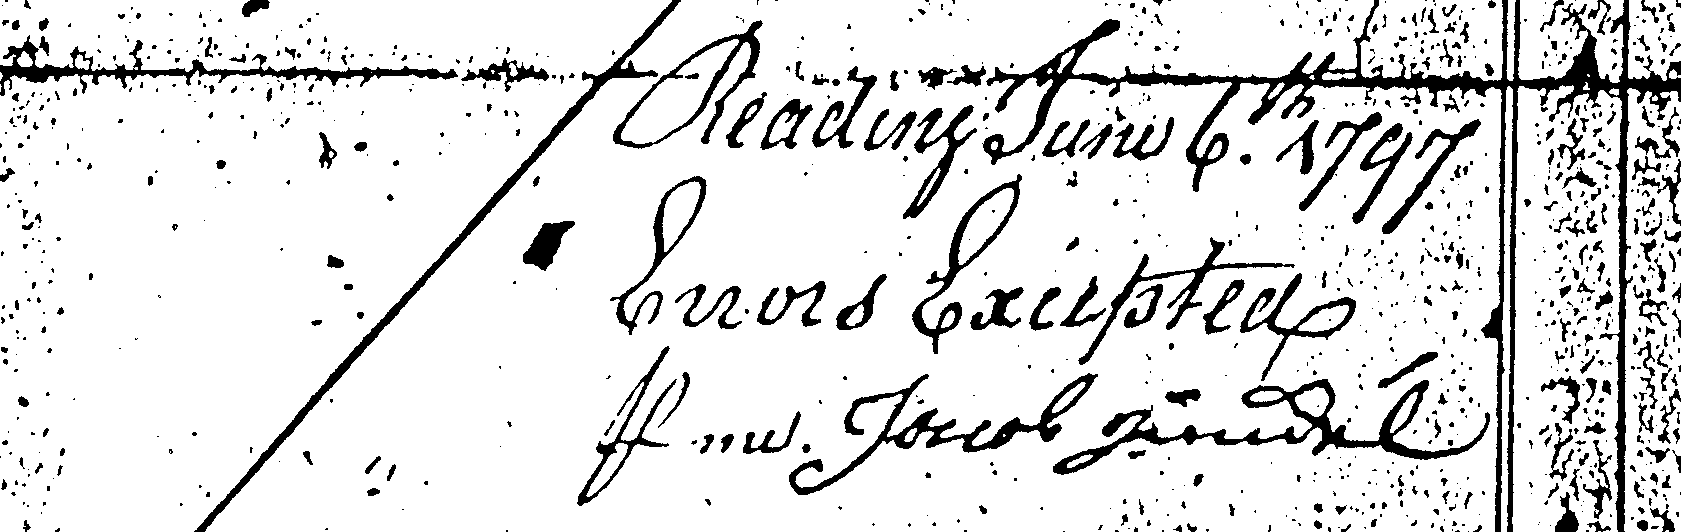 Reading June 6.th 1797
Errors Excepted
me. Jacob